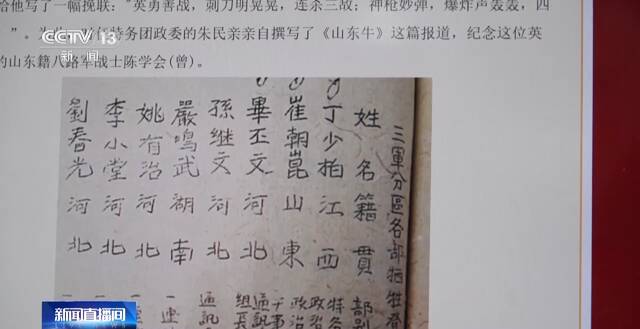 给他写了一幅挽联："英勇善战,刺刀明晃晃,连杀三敌;神枪妙弹,爆炸声轰轰,四
特务团政委的朱民亲亲自撰写了《山东牛》这篇报道,纪念这位英
的山东籍八路军战士陈学会(曾)。
CCTV 13
三軍分區各部牺牲
姓名籍貫部别
丁少柏江西
崔朝崑山東
畢丕文河北
孫继文河北
嚴鳴武湖南
姚有治河北
李小堂河北
劉春光河北
政治
通訊
組長
通訊
一連
新闻直播间